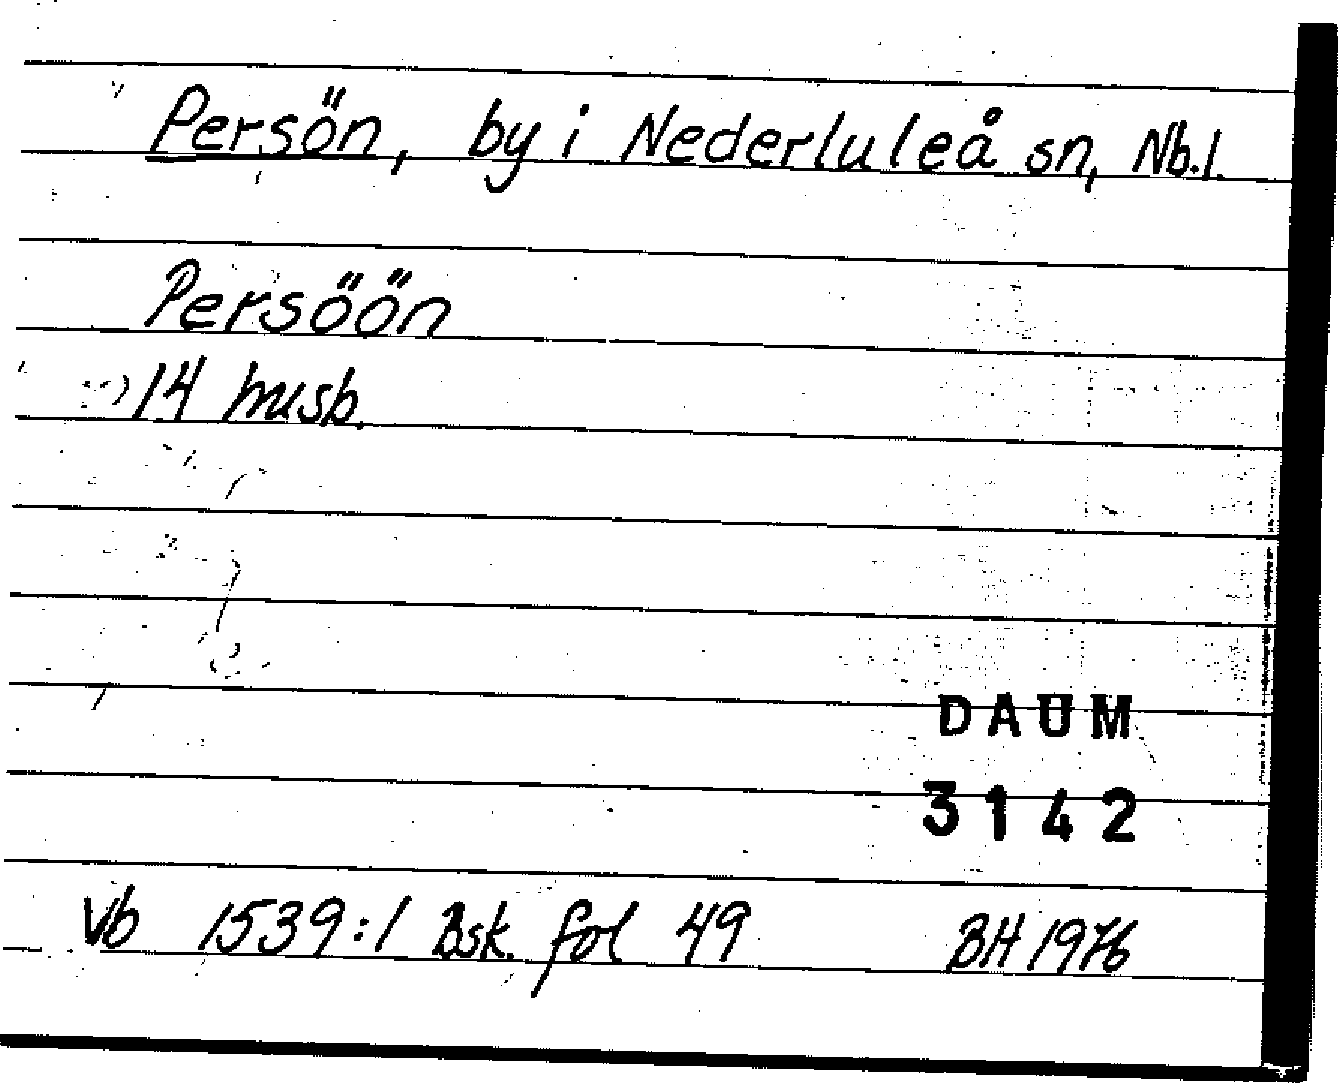 Persön, by i Nederluleå sn, Nb.l.
Persöön
14 husb.
DAUM
3142
Vb 1539:1 Bsk. fol 49 BH 1976